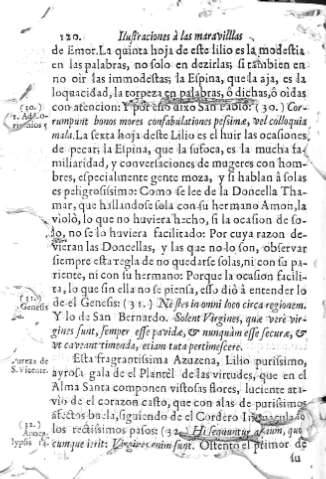 120. Ilustraciones à las maravilllas
de Emor. La quinta hoja de este lilio es la modestia
en las palabras, no solo en dezirlas; si tambien en
no oir las immodestas; la Espina, que la aja, es la
loquacidad, la torpeza en palabras, ô dichas, ô oidas
con atencion: Y por eſſo dixo San Pablo: (30.) Cor-
rumpunt bonos mores confabulationes peſsimæ, vel colloquia
mala. La sexta hoja deste Lilio es el huir las ocasiones
de pecar; la Espina, que la sufoca, es la mucha fa-
miliaridad, y conversaciones de mugeres con hom-
bres, especialmente gente moza, y si hablan â solas
es peligrosissimo: Como se lee de la Doncella Tha-
mar, que hallandose sola con su hermano Amon, la
violò, lo que no huviera hecho, si la ocasion de so-
lo, no se lo huviera facilitado: Por cuya razon de-
vieran las Doncellas, y las que no lo son, observar
siempre esta regla de no quedarse solas, ni con su pa-
riente, ni con su hermano: Porque la ocasion facili-
ta, lo que sin ella no se piensa, esso diò â entender lo
de el Genesis: (31.) Ne stes in omni loco circa regionem.
Y lo de San Bernardo. Solent Virgines, quæ verè vir-
gines sunt, semper esse pavidæ, & nunquàm esse securæ, &
ut caveant timenda, etiam tuta pertimescere.
Esta fragrantissima Azuzena, Lilio purissimo,
ayrosa gala de el Plantèl de las virtudes, que en el
Alma Santa componen vistosas flores, luciente ata-
vio de el corazon casto, que con alas de purissimos
afectos buela, siguiendo de el Cordero Inmaculado
los rectissimos pasos: (32. Hi sequuntur agnum, quo-
cumque ierit: Virgines enim sunt. Ostentò el primor de
su
(30.)
1. Ad Co-
(31.)
Genesis
Pureza de
S. Vicente.
(32.)
Apoca-
lypsis